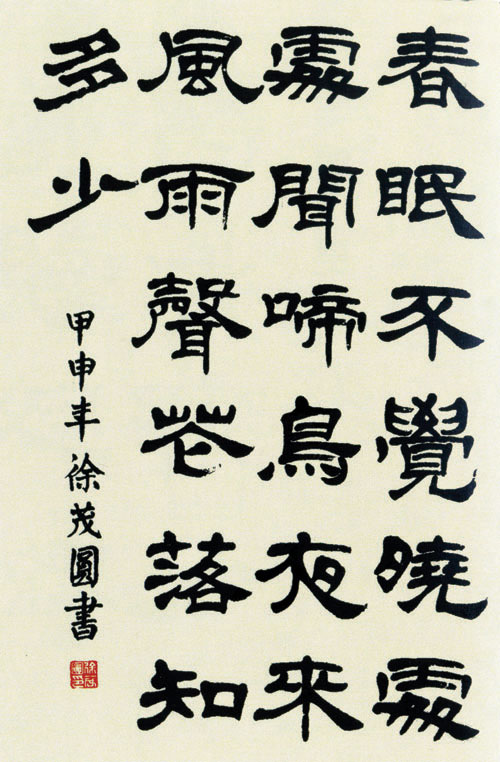 春眠不覺曉處
處聞啼鳥夜來
風雨聲花落知
多少
甲申年徐茂圓書